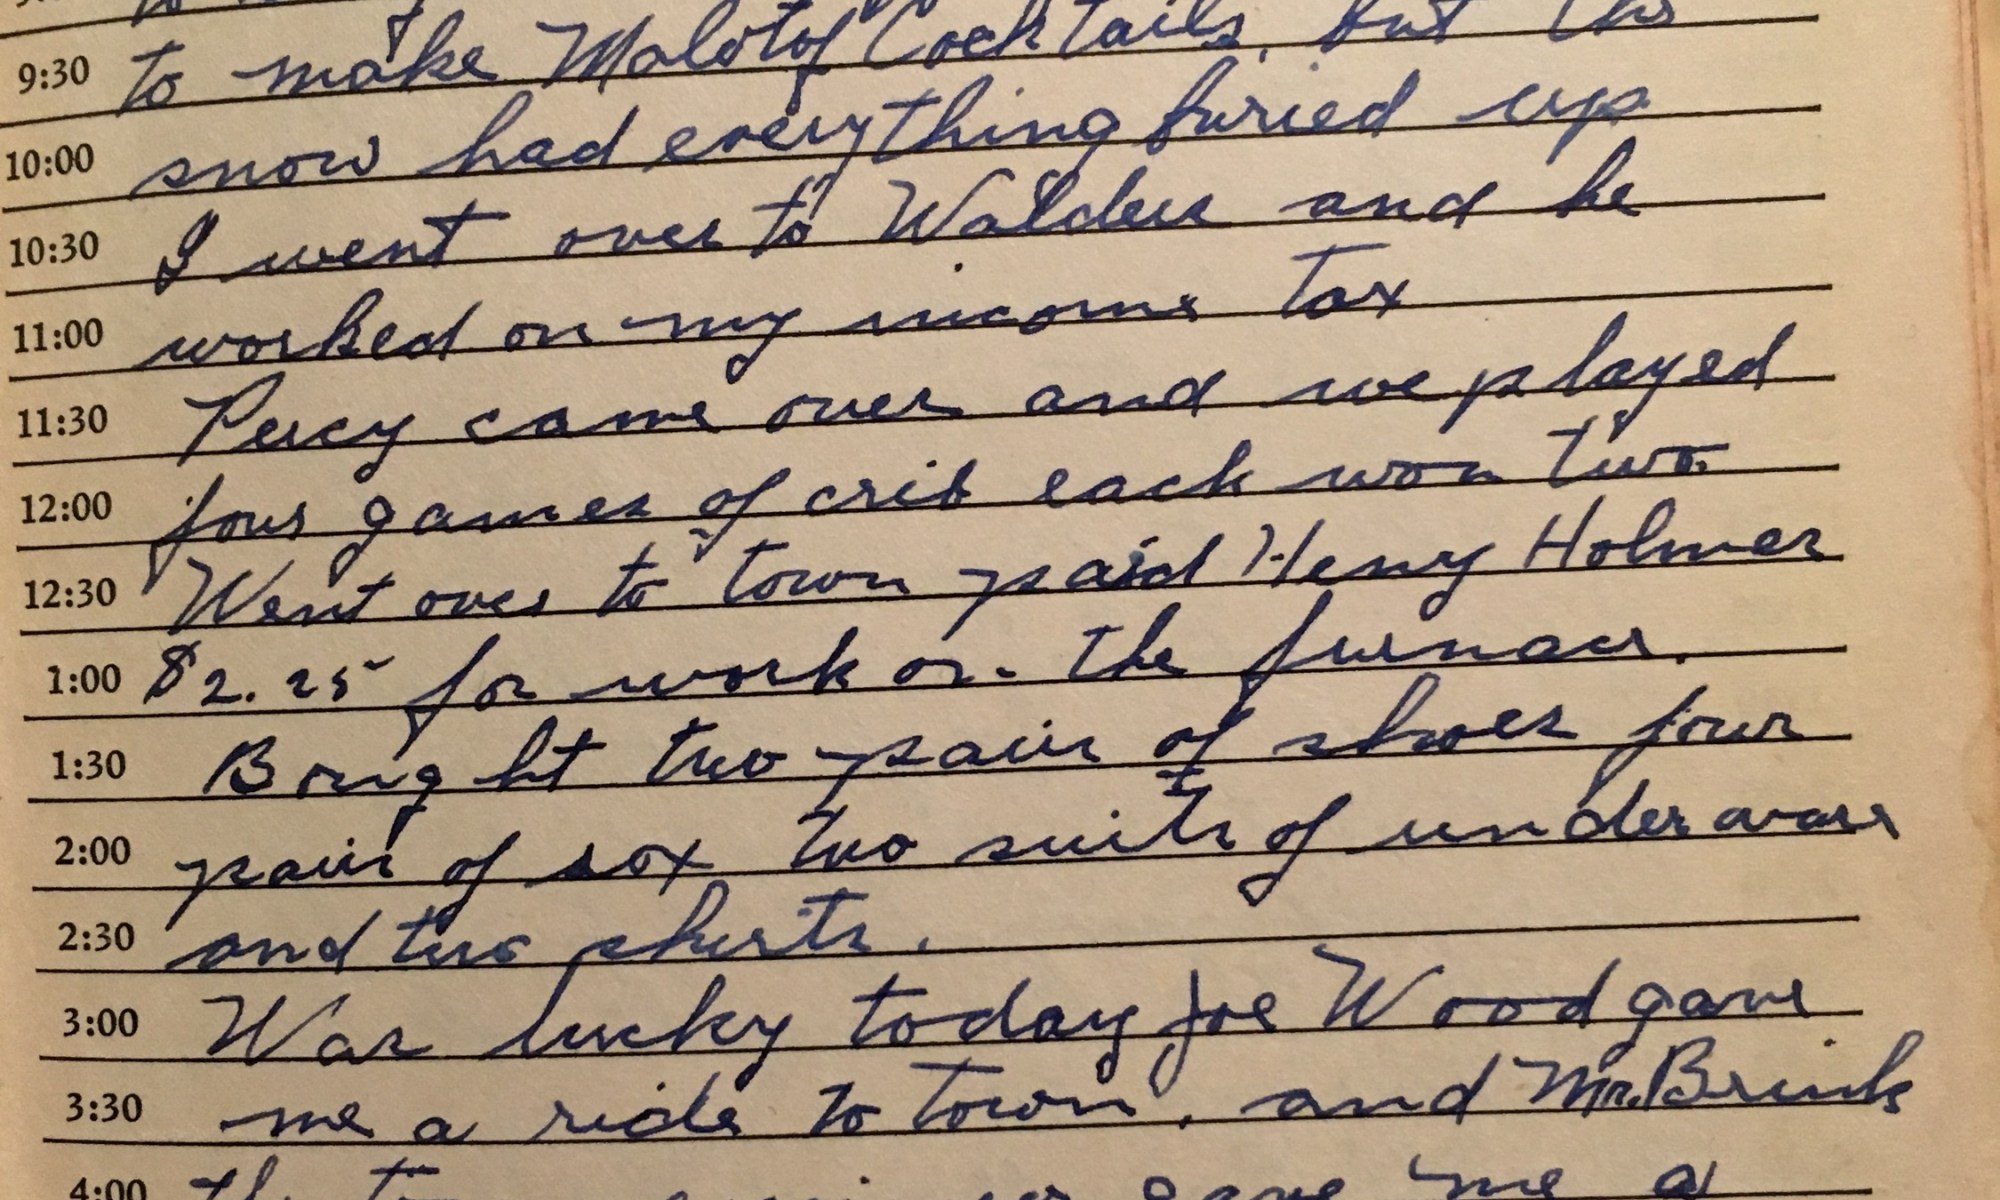 9:30 to make Molotof Cocktails, but the
10:00 snow had everything buried up
10:30 I went over to Walders and he
11:00 worked on my income tax
11:30 Percy came over and we played
12:00 four games of crib each won two.
12:30 Went over to town paid Henry Holmes
1:00 $2.25 for work on the furnace.
1:30 Bought two pairs of shoes four
2:00 pairs of sox two suits of underware
2:30 and two shirts.
3:00 Was lucky today Joe Wood gave
3:30 me a ride to town, and Mr. Brink
4:00 gave me a